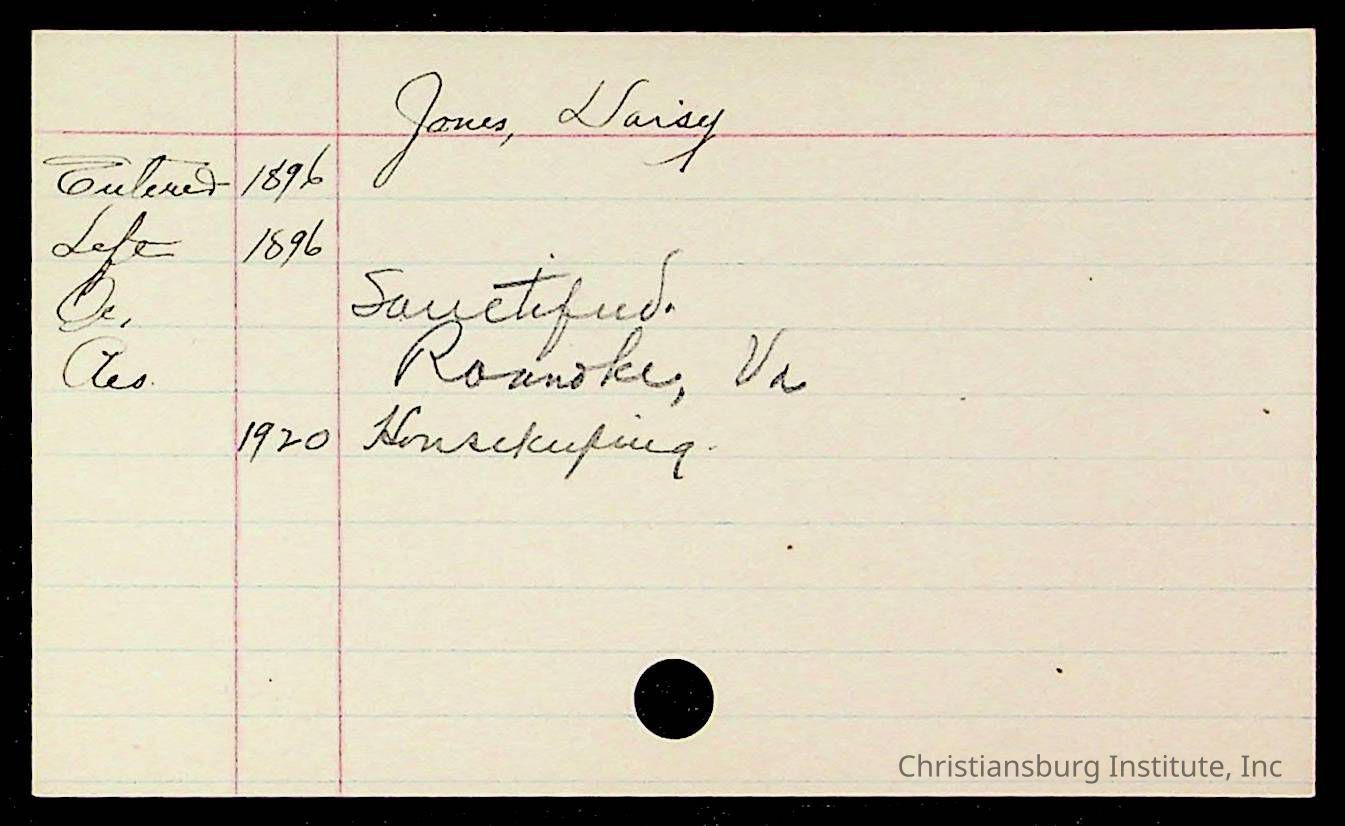 Jones, Daisy
Entered 1896
Left 1896
De, Sanctified.
Res. Roanoke, Va
1920 Housekeeping.
Christiansburg Institute, Inc